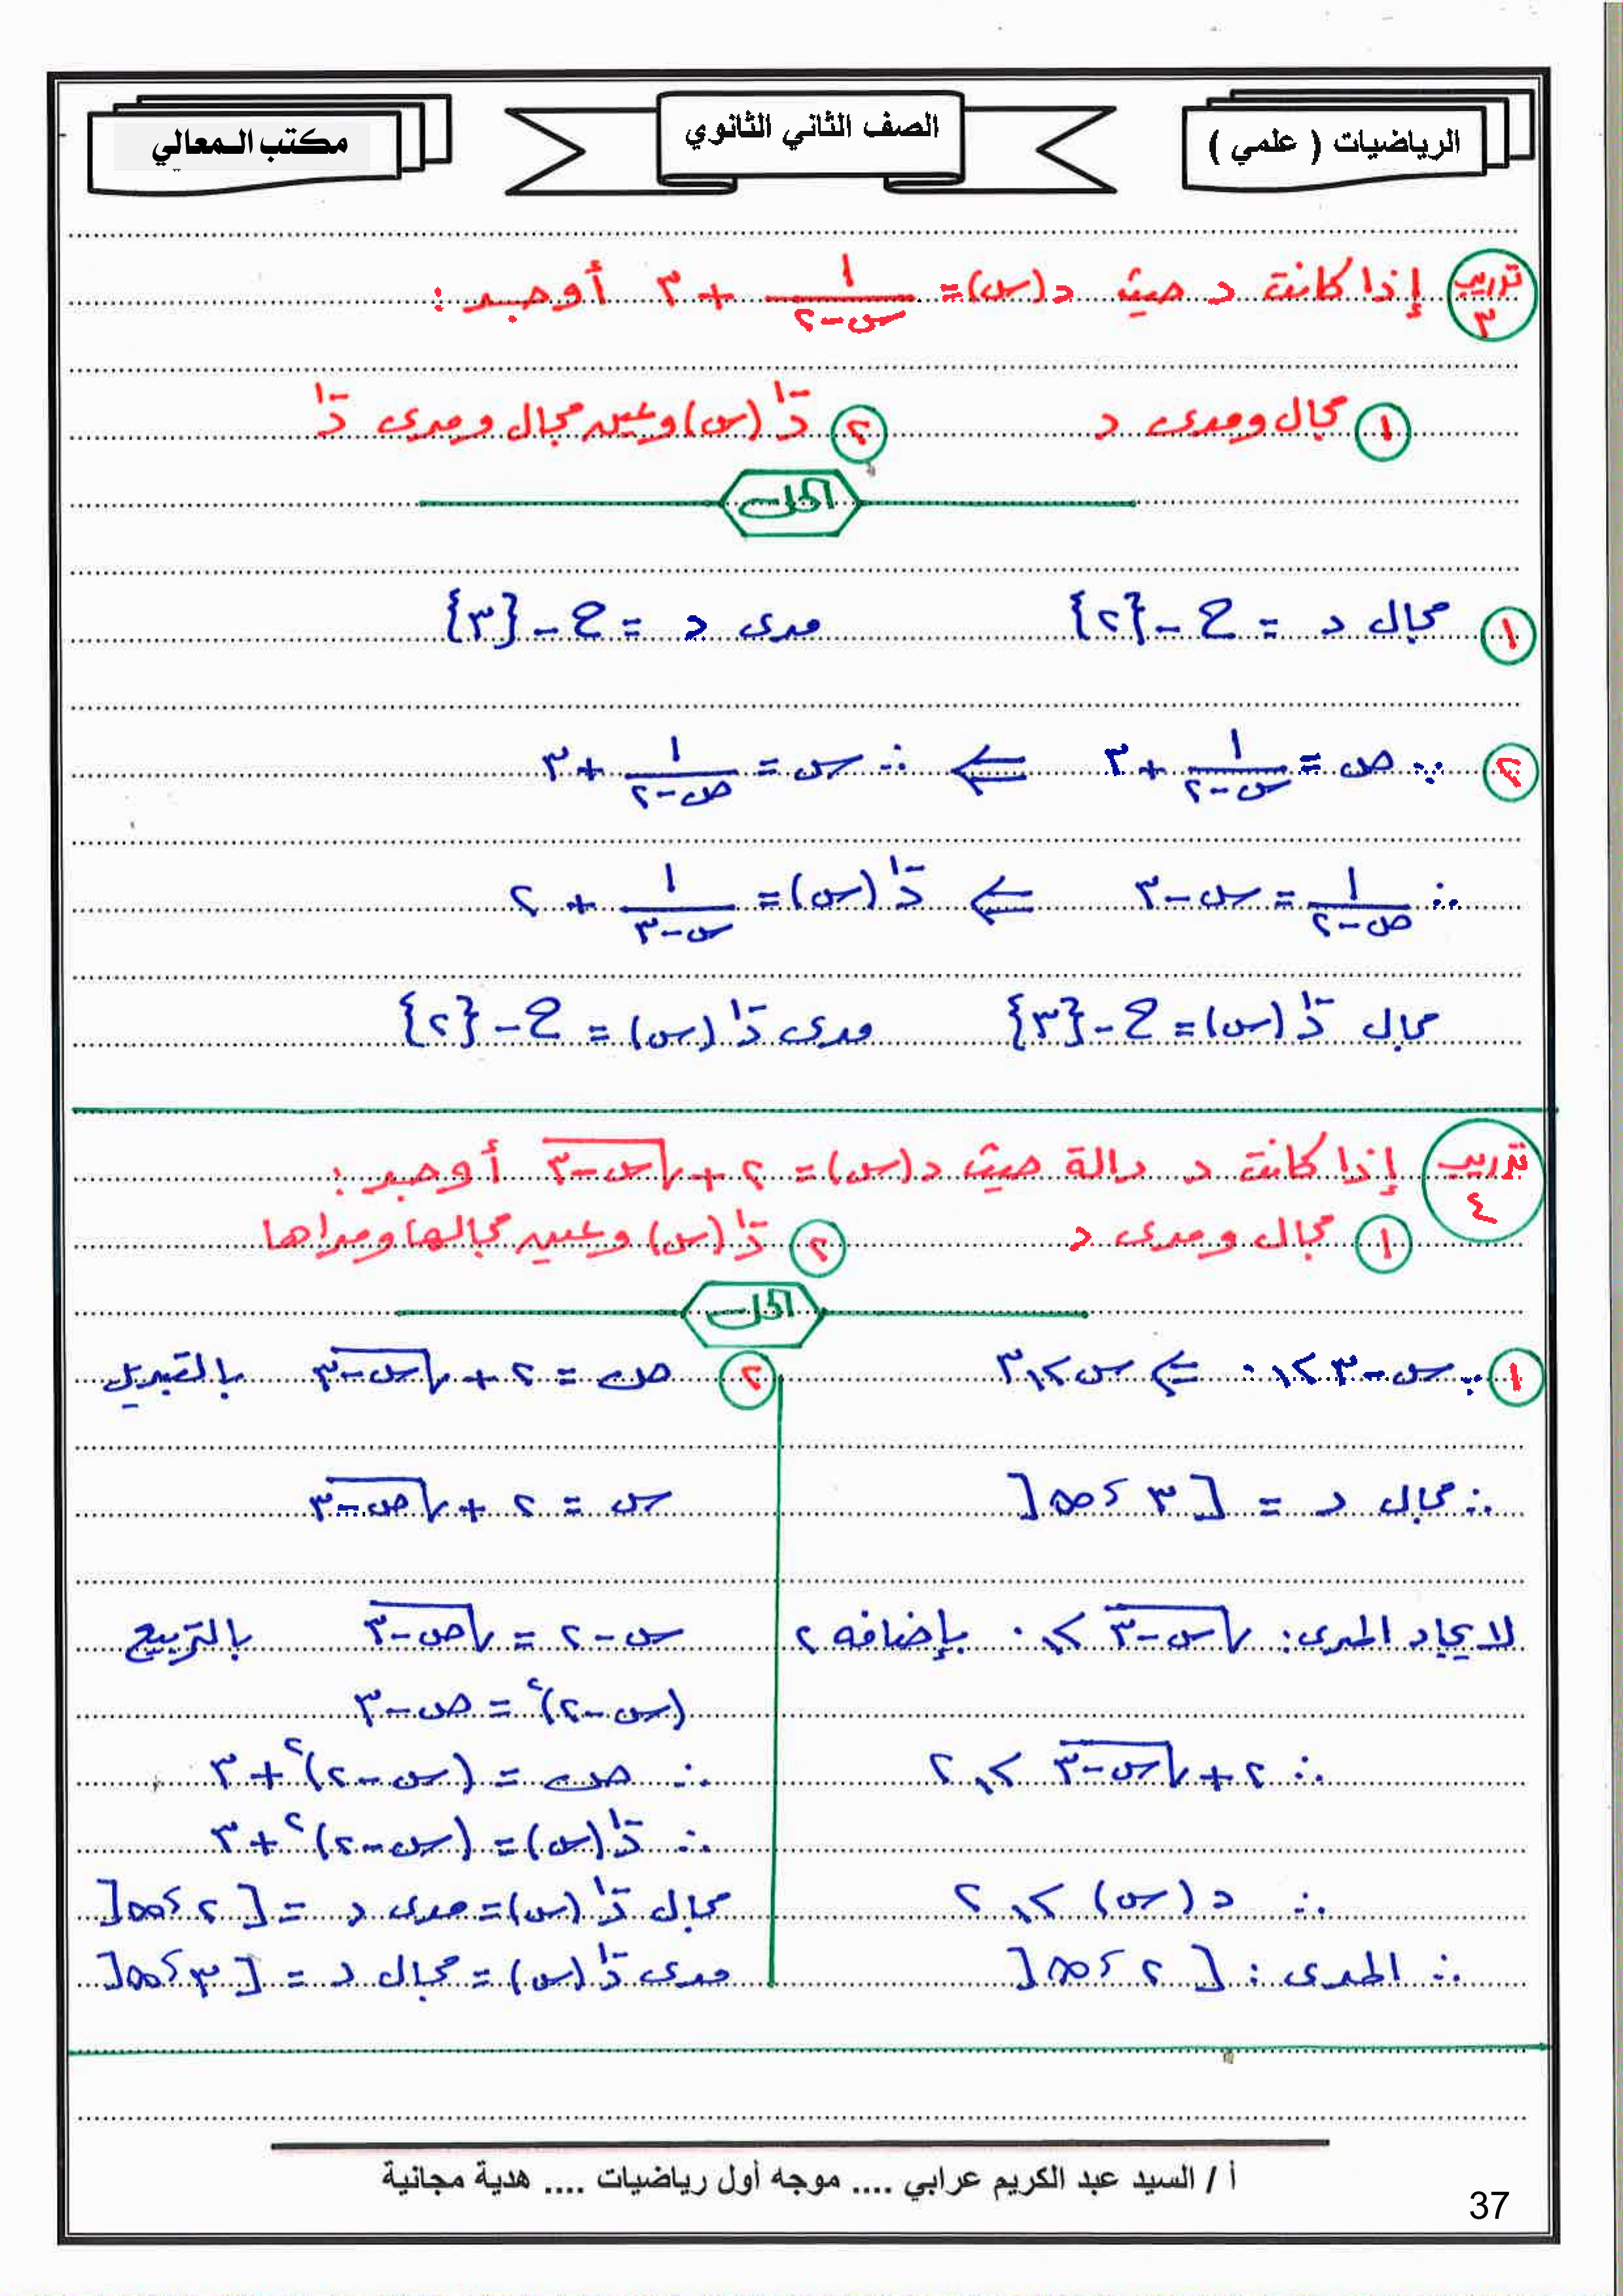 الرياضيات ( علمي )
الصف الثاني الثانوي
مكتب المعالي
تدريب ٣ إذا كانت د حيث د(س) = ١/(س-٢) + ٣ أوجد :
١ مجال ومدى د ٢ د⁻¹(س) وعين مجال ومدى د⁻¹
الحل
١ مجال د = ح - {٢} مدى د = ح - {٣}
٢ ∵ ص = ١/(س-٢) + ٣ ⇐ ∴ س = ١/(ص-٢) + ٣
∴ ١/(ص-٢) = س - ٣ ⇐ د⁻¹(س) = ١/(س-٣) + ٢
مجال د⁻¹(س) = ح - {٣} مدى د⁻¹(س) = ح - {٢}
تدريب ٤ إذا كانت د دالة حيث د(س) = ٢ + √(س-٣) أوجد :
١ مجال ومدى د ٢ د⁻¹(س) وعين مجالها ومداها
الحل
١ ∵ س - ٣ ≥ ٠ ⇐ س ≥ ٣
∴ مجال د = [٣ ، ∞[
لايجاد المدى : √(س-٣) ≥ ٠ بإضافه ٢
∴ ٢ + √(س-٣) ≥ ٢
∴ د(س) ≥ ٢
∴ المدى : [٢ ، ∞[
٢ ص = ٢ + √(س-٣) بالتبديل
س = ٢ + √(ص-٣)
س - ٢ = √(ص-٣) بالتربيع
(س-٢)² = ص - ٣
∴ ص = (س-٢)² + ٣
∴ د⁻¹(س) = (س-٢)² + ٣
مجال د⁻¹(س) = مدى د = [٢ ، ∞[
مدى د⁻¹(س) = مجال د = [٣ ، ∞[
أ / السيد عبد الكريم عرابي .... موجه أول رياضيات .... هدية مجانية
37